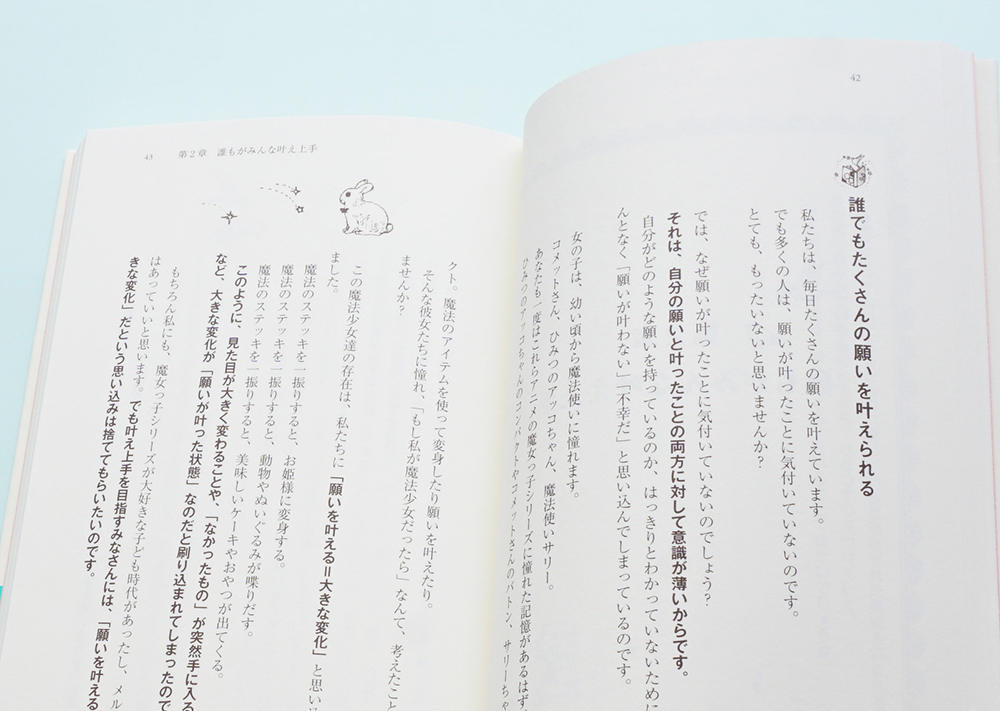 42
誰でもたくさんの願いを叶えられる
私たちは、毎日たくさんの願いを叶えています。
でも多くの人は、願いが叶ったことに気付いていないのです。
とても、もったいないと思いませんか？
では、なぜ願いが叶ったことに気付いていないのでしょう？
それは、自分の願いと叶ったことの両方に対して意識が薄いからです。
自分がどのような願いを持っているのか、はっきりとわかっていないために
んとなく「願いが叶わない」「不幸だ」と思い込んでしまっているのです。
女の子は、幼い頃から魔法使いに憧れます。
コメットさん、ひみつのアッコちゃん、魔法使いサリー。
あなたも一度はこれらアニメの魔女っ子シリーズに憧れた記憶があるはず
ひみつのアッコちゃんのコンパクトやコメットさんのバトン、サリーちゃ
43
第2章 誰もがみんな叶え上手
クト。魔法のアイテムを使って変身したり願いを叶えたり。
そんな彼女たちに憧れ、「もし私が魔法少女だったら」なんて、考えたこと
ませんか？
この魔法少女達の存在は、私たちに「願いを叶える＝大きな変化」と思い
ました。
魔法のステッキを一振りすると、お姫様に変身する。
魔法のステッキを一振りすると、動物やぬいぐるみが喋りだす。
魔法のステッキを一振りすると、美味しいケーキやおやつが出てくる。
このように、見た目が大きく変わることや、「なかったもの」が突然手に入る
など、大きな変化が「願いが叶った状態」なのだと刷り込まれてしまったので
もちろん私にも、魔女っ子シリーズが大好きな子ども時代があったし、メル
はあっていいと思います。でも叶え上手を目指すみなさんには、「願いを叶える
きな変化」だという思い込みは捨ててもらいたいのです。